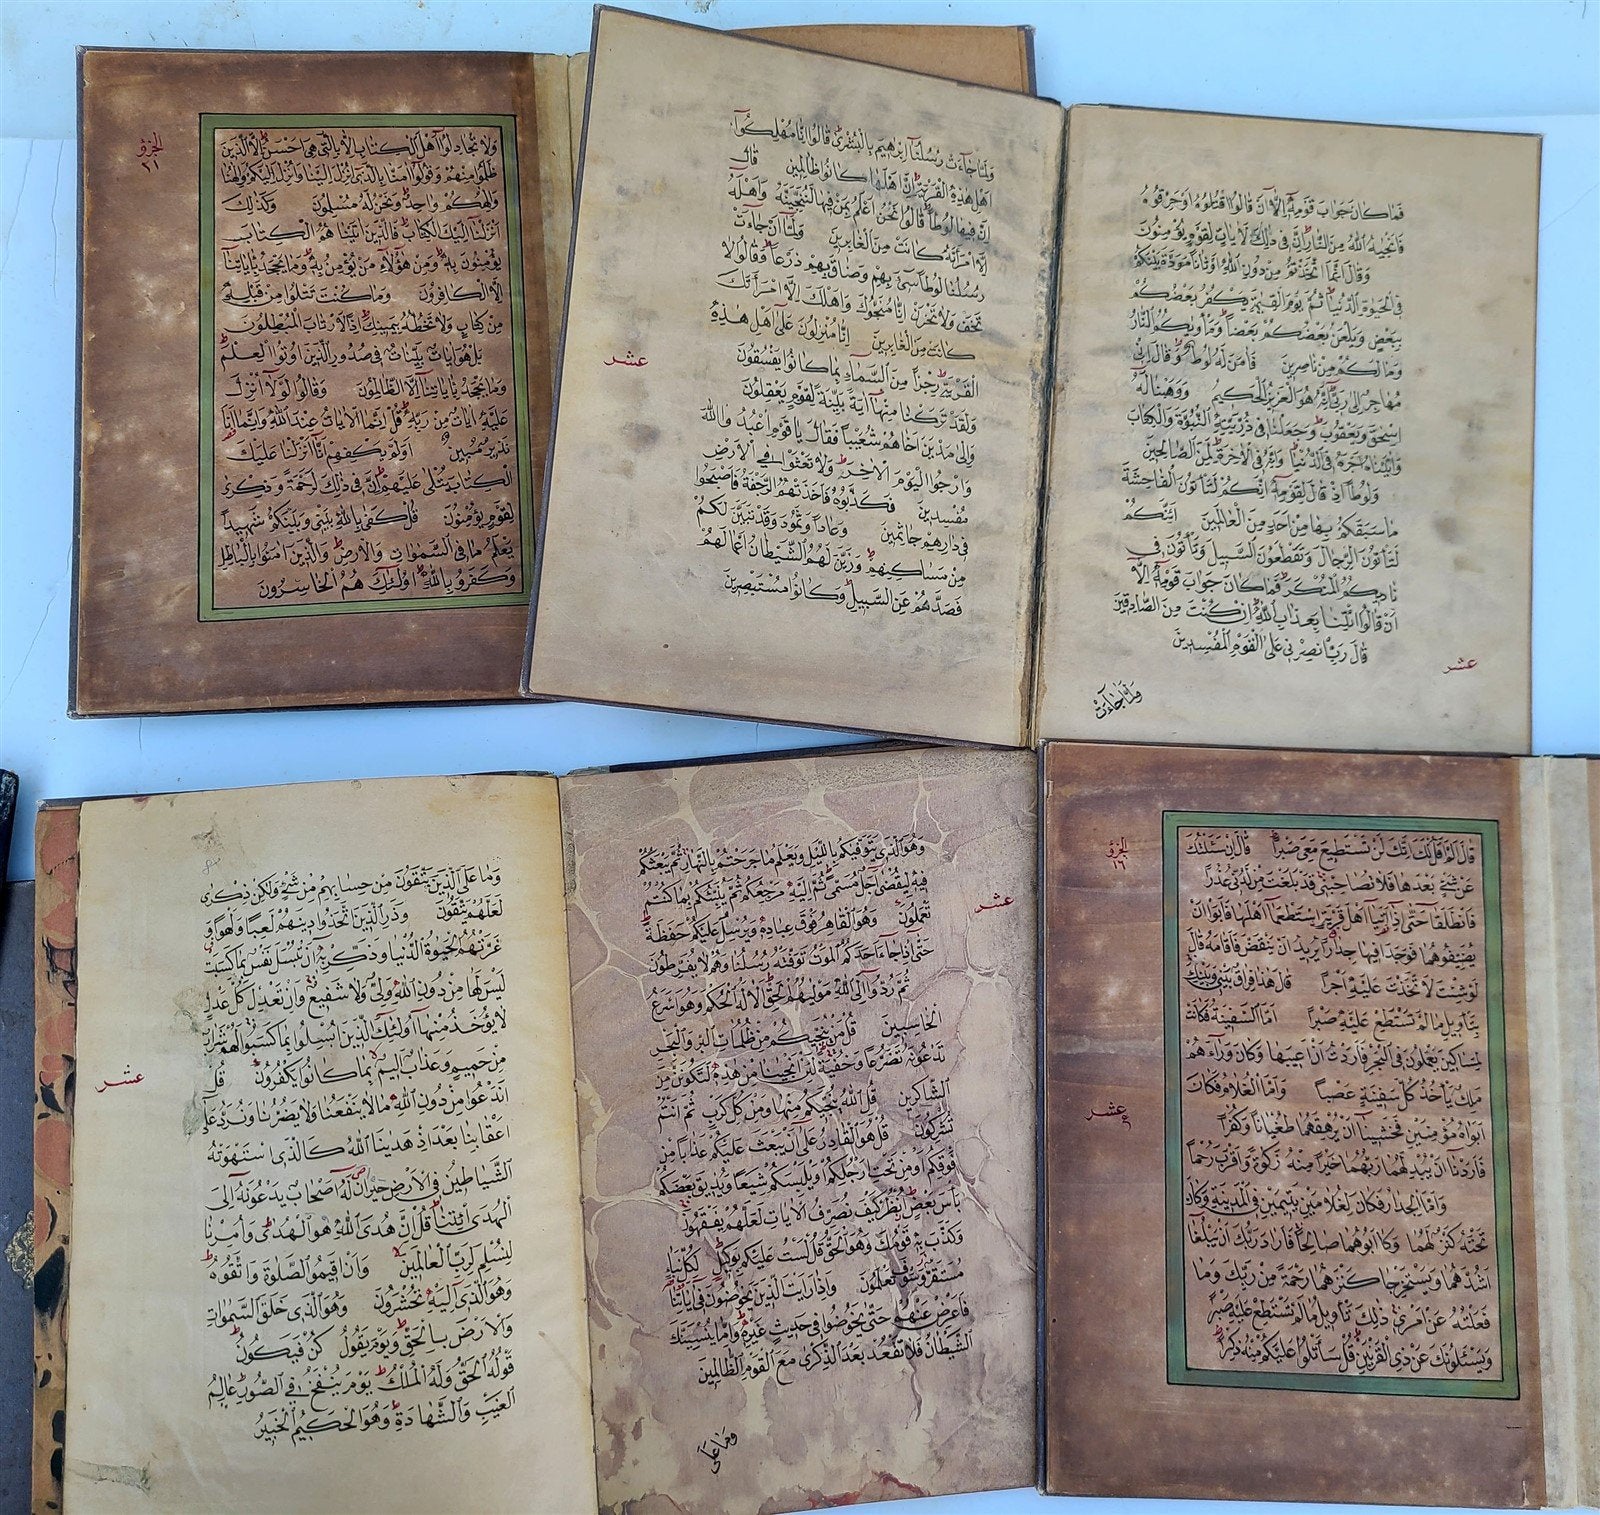 الجزؤ
٢١
ولا تجادلوا اهل الكتاب الا بالتي هي احسن الا الذين
ظلموا منهم وقولوا امنا بالذي انزل الينا وانزل اليكم والهنا
والهكم واحد ونحن له مسلمون وكذلك
انزلنا اليك الكتاب فالذين اتيناهم الكتاب
يؤمنون به ومن هؤلاء من يؤمن به وما يجحد باياتنا
الا الكافرون وما كنت تتلوا من قبله
من كتاب ولا تخطه بيمينك اذا لارتاب المبطلون
بل هو ايات بينات في صدور الذين اوتوا العلم
وما يجحد باياتنا الا الظالمون وقالوا لولا انزل
عليه ايات من ربه قل انما الايات عند الله وانما انا
نذير مبين اولم يكفهم انا انزلنا عليك
الكتاب يتلى عليهم ان في ذلك لرحمة وذكرى
لقوم يؤمنون قل كفى بالله بيني وبينكم شهيدا
يعلم ما في السموات والارض والذين امنوا بالباطل
وكفروا بالله اولئك هم الخاسرون
فما كان جواب قومه الا ان قالوا اقتلوه او حرقوه
فانجيه الله من النار ان في ذلك لايات لقوم يؤمنون
وقال انما اتخذتم من دون الله اوثانا مودة بينكم
في الحيوة الدنيا ثم يوم القيمة يكفر بعضكم
ببعض ويلعن بعضكم بعضا ومأويكم النار
وما لكم من ناصرين فامن له لوط وقال اني
مهاجر الى ربي انه هو العزيز الحكيم ووهبنا له
اسحق ويعقوب وجعلنا في ذريته النبوة والكتاب
واتيناه اجره في الدنيا وانه في الاخرة لمن الصالحين
ولوطا اذ قال لقومه انكم لتأتون الفاحشة
ما سبقكم بها من احد من العالمين ائنكم
لتأتون الرجال وتقطعون السبيل وتأتون في
ناديكم المنكر فما كان جواب قومه الا
ان قالوا ائتنا بعذاب الله ان كنت من الصادقين
قال رب انصرني على القوم المفسدين
عشر
ولما جاءت
ولما جاءت رسلنا ابرهيم بالبشرى قالوا انا مهلكوا
اهل هذه القرية ان اهلها كانوا ظالمين قال
ان فيها لوطا قالوا نحن اعلم بمن فيها لننجينه واهله
الا امرأته كانت من الغابرين ولما ان جاءت
رسلنا لوطا سيء بهم وضاق بهم ذرعا وقالوا لا
تخف ولا تحزن انا منجوك واهلك الا امرأتك
كانت من الغابرين انا منزلون على اهل هذه
القرية رجزا من السماء بما كانوا يفسقون
عشر
ولقد تركنا منها اية بينة لقوم يعقلون
والى مدين اخاهم شعيبا فقال يا قوم اعبدوا الله
وارجوا اليوم الاخر ولا تعثوا في الارض
مفسدين فكذبوه فاخذتهم الرجفة فاصبحوا
في دارهم جاثمين وعادا وثمود وقد تبين لكم
من مساكنهم وزين لهم الشيطان اعمالهم
فصدهم عن السبيل وكانوا مستبصرين
وهو الذي يتوفيكم بالليل ويعلم ما جرحتم بالنهار ثم يبعثكم
فيه ليقضى اجل مسمى ثم اليه مرجعكم ثم ينبئكم بما كنتم
عشر
تعملون وهو القاهر فوق عباده ويرسل عليكم حفظة
حتى اذا جاء احدكم الموت توفته رسلنا وهم لا يفرطون
ثم ردوا الى الله موليهم الحق الا له الحكم وهو اسرع
الحاسبين قل من ينجيكم من ظلمات البر والبحر
تدعونه تضرعا وخفية لئن انجينا من هذه لنكونن من
الشاكرين قل الله ينجيكم منها ومن كل كرب ثم انتم
تشركون قل هو القادر على ان يبعث عليكم عذابا من
فوقكم او من تحت ارجلكم او يلبسكم شيعا ويذيق بعضكم
بأس بعض انظر كيف نصرف الايات لعلهم يفقهون
وكذب به قومك وهو الحق قل لست عليكم بوكيل لكل نباء
مستقر وسوف تعلمون واذا رايت الذين يخوضون في اياتنا
فاعرض عنهم حتى يخوضوا في حديث غيره واما ينسينك
الشيطان فلا تقعد بعد الذكرى مع القوم الظالمين
وما على
وما على الذين يتقون من حسابهم من شيء ولكن ذكرى
لعلهم يتقون وذر الذين اتخذوا دينهم لعبا ولهوا و
غرتهم الحيوة الدنيا وذكر به ان تبسل نفس بما كسبت
ليس لها من دون الله ولي ولا شفيع وان تعدل كل عدل
لا يؤخذ منها اولئك الذين ابسلوا بما كسبوا لهم شراب
من حميم وعذاب اليم بما كانوا يكفرون قل
عشر
اندعوا من دون الله ما لا ينفعنا ولا يضرنا ونرد على
اعقابنا بعد اذ هدينا الله كالذي استهوته
الشياطين في الارض حيران له اصحاب يدعونه الى
الهدى ائتنا قل ان هدى الله هو الهدى وامرنا
لنسلم لرب العالمين وان اقيموا الصلوة واتقوه
وهو الذي اليه تحشرون وهو الذي خلق السموات
والارض بالحق ويوم يقول كن فيكون
قوله الحق وله الملك يوم ينفخ في الصور عالم
الغيب والشهادة وهو الحكيم الخبير
الجزؤ
١٦
قال الم اقل لك انك لن تستطيع معي صبرا قال ان سئلتك
عن شيء بعدها فلا تصاحبني قد بلغت من لدني عذرا
فانطلقا حتى اذا اتيا اهل قرية استطعما اهلها فابوا ان
يضيفوهما فوجدا فيها جدارا يريد ان ينقض فاقامه قال
لو شئت لاتخذت عليه اجرا قال هذا فراق بيني وبينك
بتأويل ما لم تستطع عليه صبرا اما السفينة فكانت
لمساكين يعملون في البحر فاردت ان اعيبها وكان وراءهم
ملك يأخذ كل سفينة غصبا واما الغلام فكان
عشر
ابواه مؤمنين فخشينا ان يرهقهما طغيانا وكفرا
فاردنا ان يبدلهما ربهما خيرا منه زكوة واقرب رحما
واما الجدار فكان لغلامين يتيمين في المدينة وكان
تحته كنز لهما وكان ابوهما صالحا فاراد ربك ان يبلغا
اشدهما ويستخرجا كنزهما رحمة من ربك وما
فعلته عن امري ذلك تأويل ما لم تستطع عليه صبرا
ويسئلونك عن ذي القرنين قل سأتلوا عليكم منه ذكرا